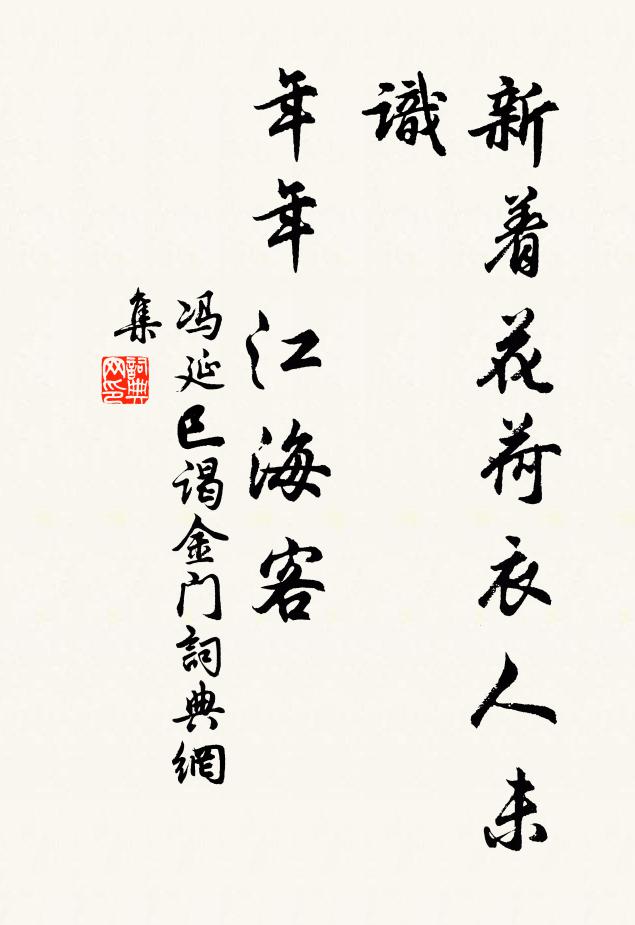 新着花荷衣人未
識
年年江海客
冯延巳谒金门詞典網
集
詞典
网印